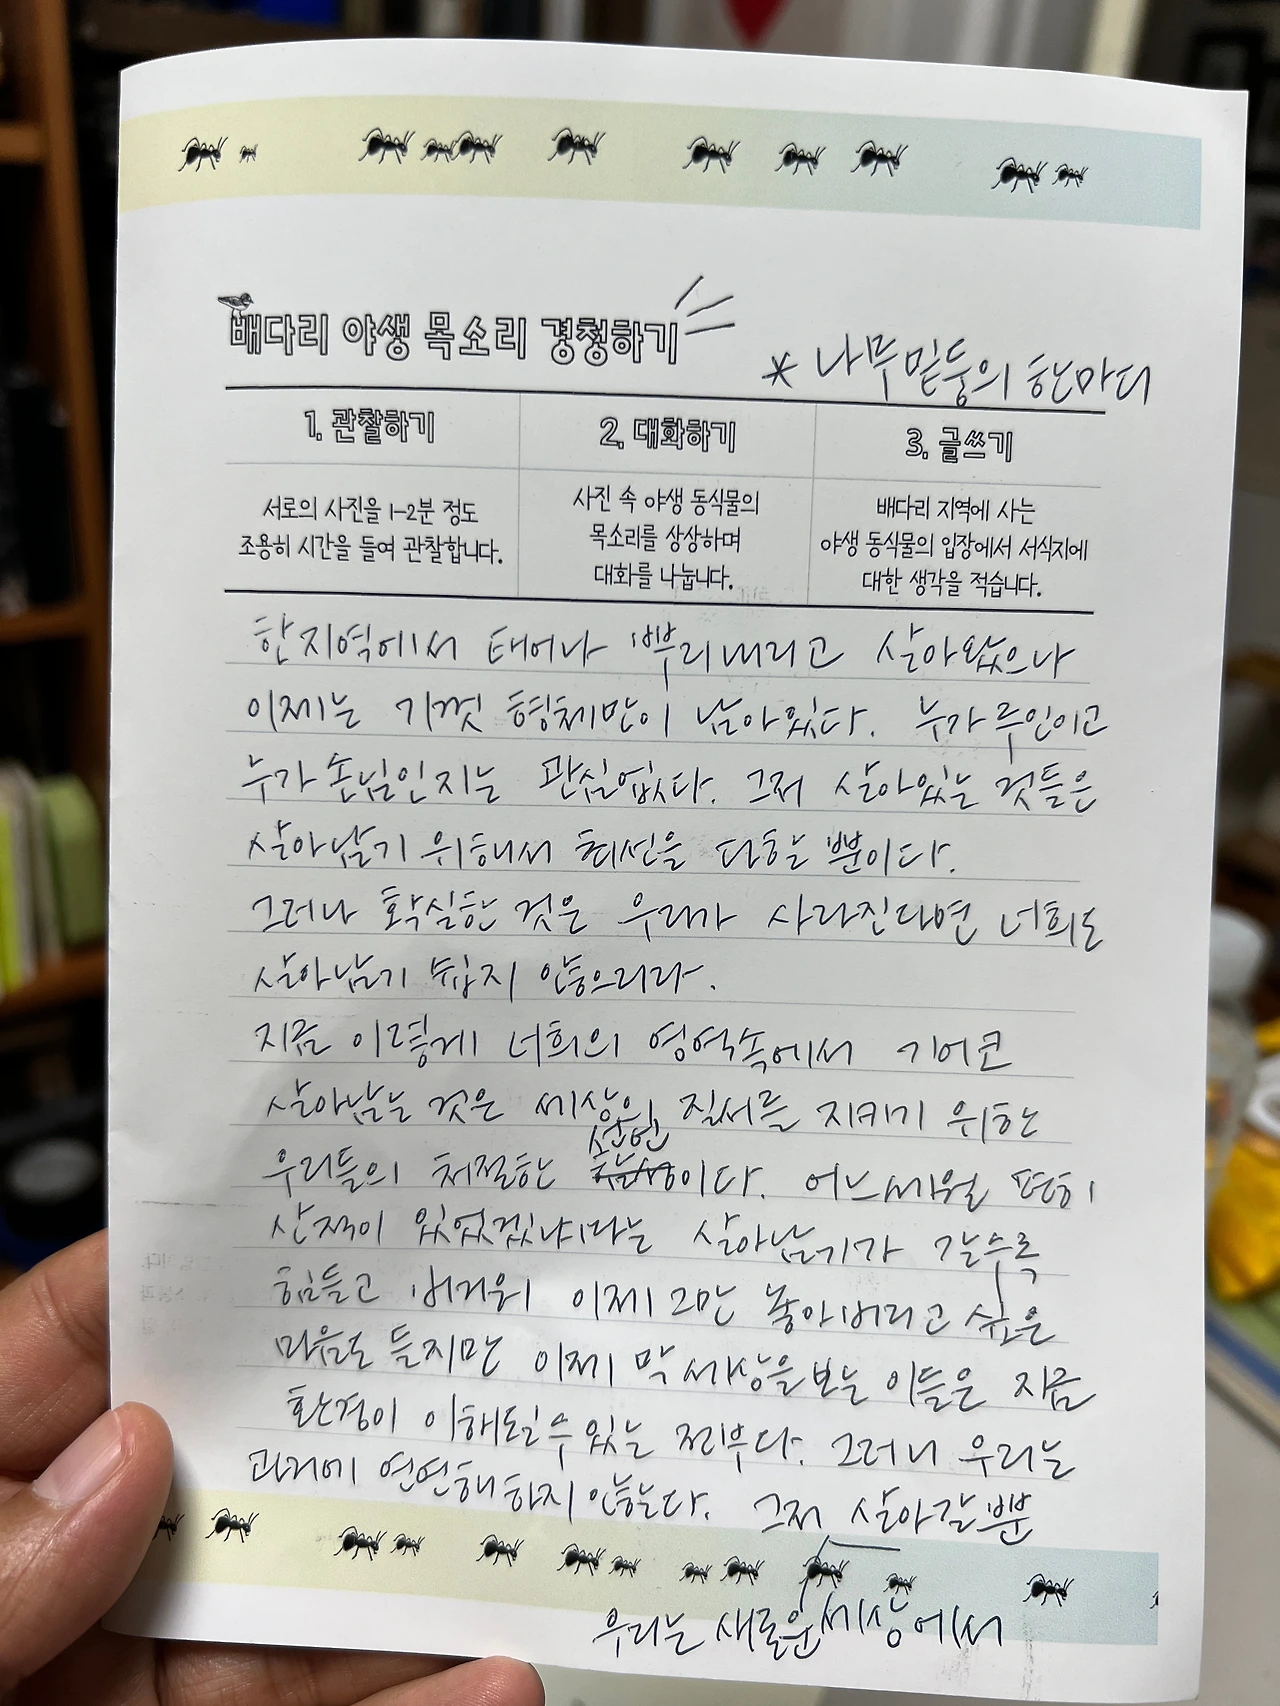 배다리 야생 목소리 경청하기
* 나무밑둥의 한마디
1. 관찰하기
2. 대화하기
3. 글쓰기
서로의 사진을 1-2분 정도
조용히 시간을 들여 관찰합니다.
사진 속 야생 동식물의
목소리를 상상하며
대화를 나눕니다.
배다리 지역에 사는
야생 동식물의 입장에서 서식지에
대한 생각을 적습니다.
한지역에서 태어나 뿌리내리고 살아왔으나
이제는 기껏 형체만이 남아있다. 누가 주인이고
누가 손님인지는 관심없다. 그저 살아있는 것들은
살아남기 위해서 최선을 다할 뿐이다.
그러나 확실한 것은 우리가 사라진다면 너희도
살아남기 쉽지 않으리라.
지금 이렇게 너희의 영역속에서 기어코
살아남는 것은 세상의 질서를 지키기 위한
우리들의 처절한 선언이다. 어느세월 편히
산적이 있었겠냐마는 살아남기가 갈수록
힘들고 버거워 이제 그만 놓아버리고 싶은
마음도 들지만 이제 막 세상을 보는 이들은 지금
환경이 이해될 수 있는 전부다. 그러니 우리는
과거에 연연해하지 않는다. 그저 살아갈 뿐
우리는 새로운 세상에서